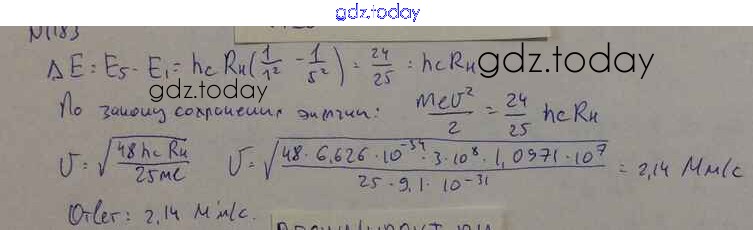 gdz.today
N1183
ΔE = E5 - E1 = hcRн(1/1² - 1/5²) = 24/25 · hcRн gdz.today
gdz.today
По закону сохранения энергии: meV²/2 = 24/25 hcRн
V = √(48hcRн/25me) V = √(48 · 6,626 · 10⁻³⁴ · 3 · 10⁸ · 1,0971 · 10⁷/25 · 9,1 · 10⁻³¹) = 2,14 Мм/с
Ответ: 2,14 Мм/с.